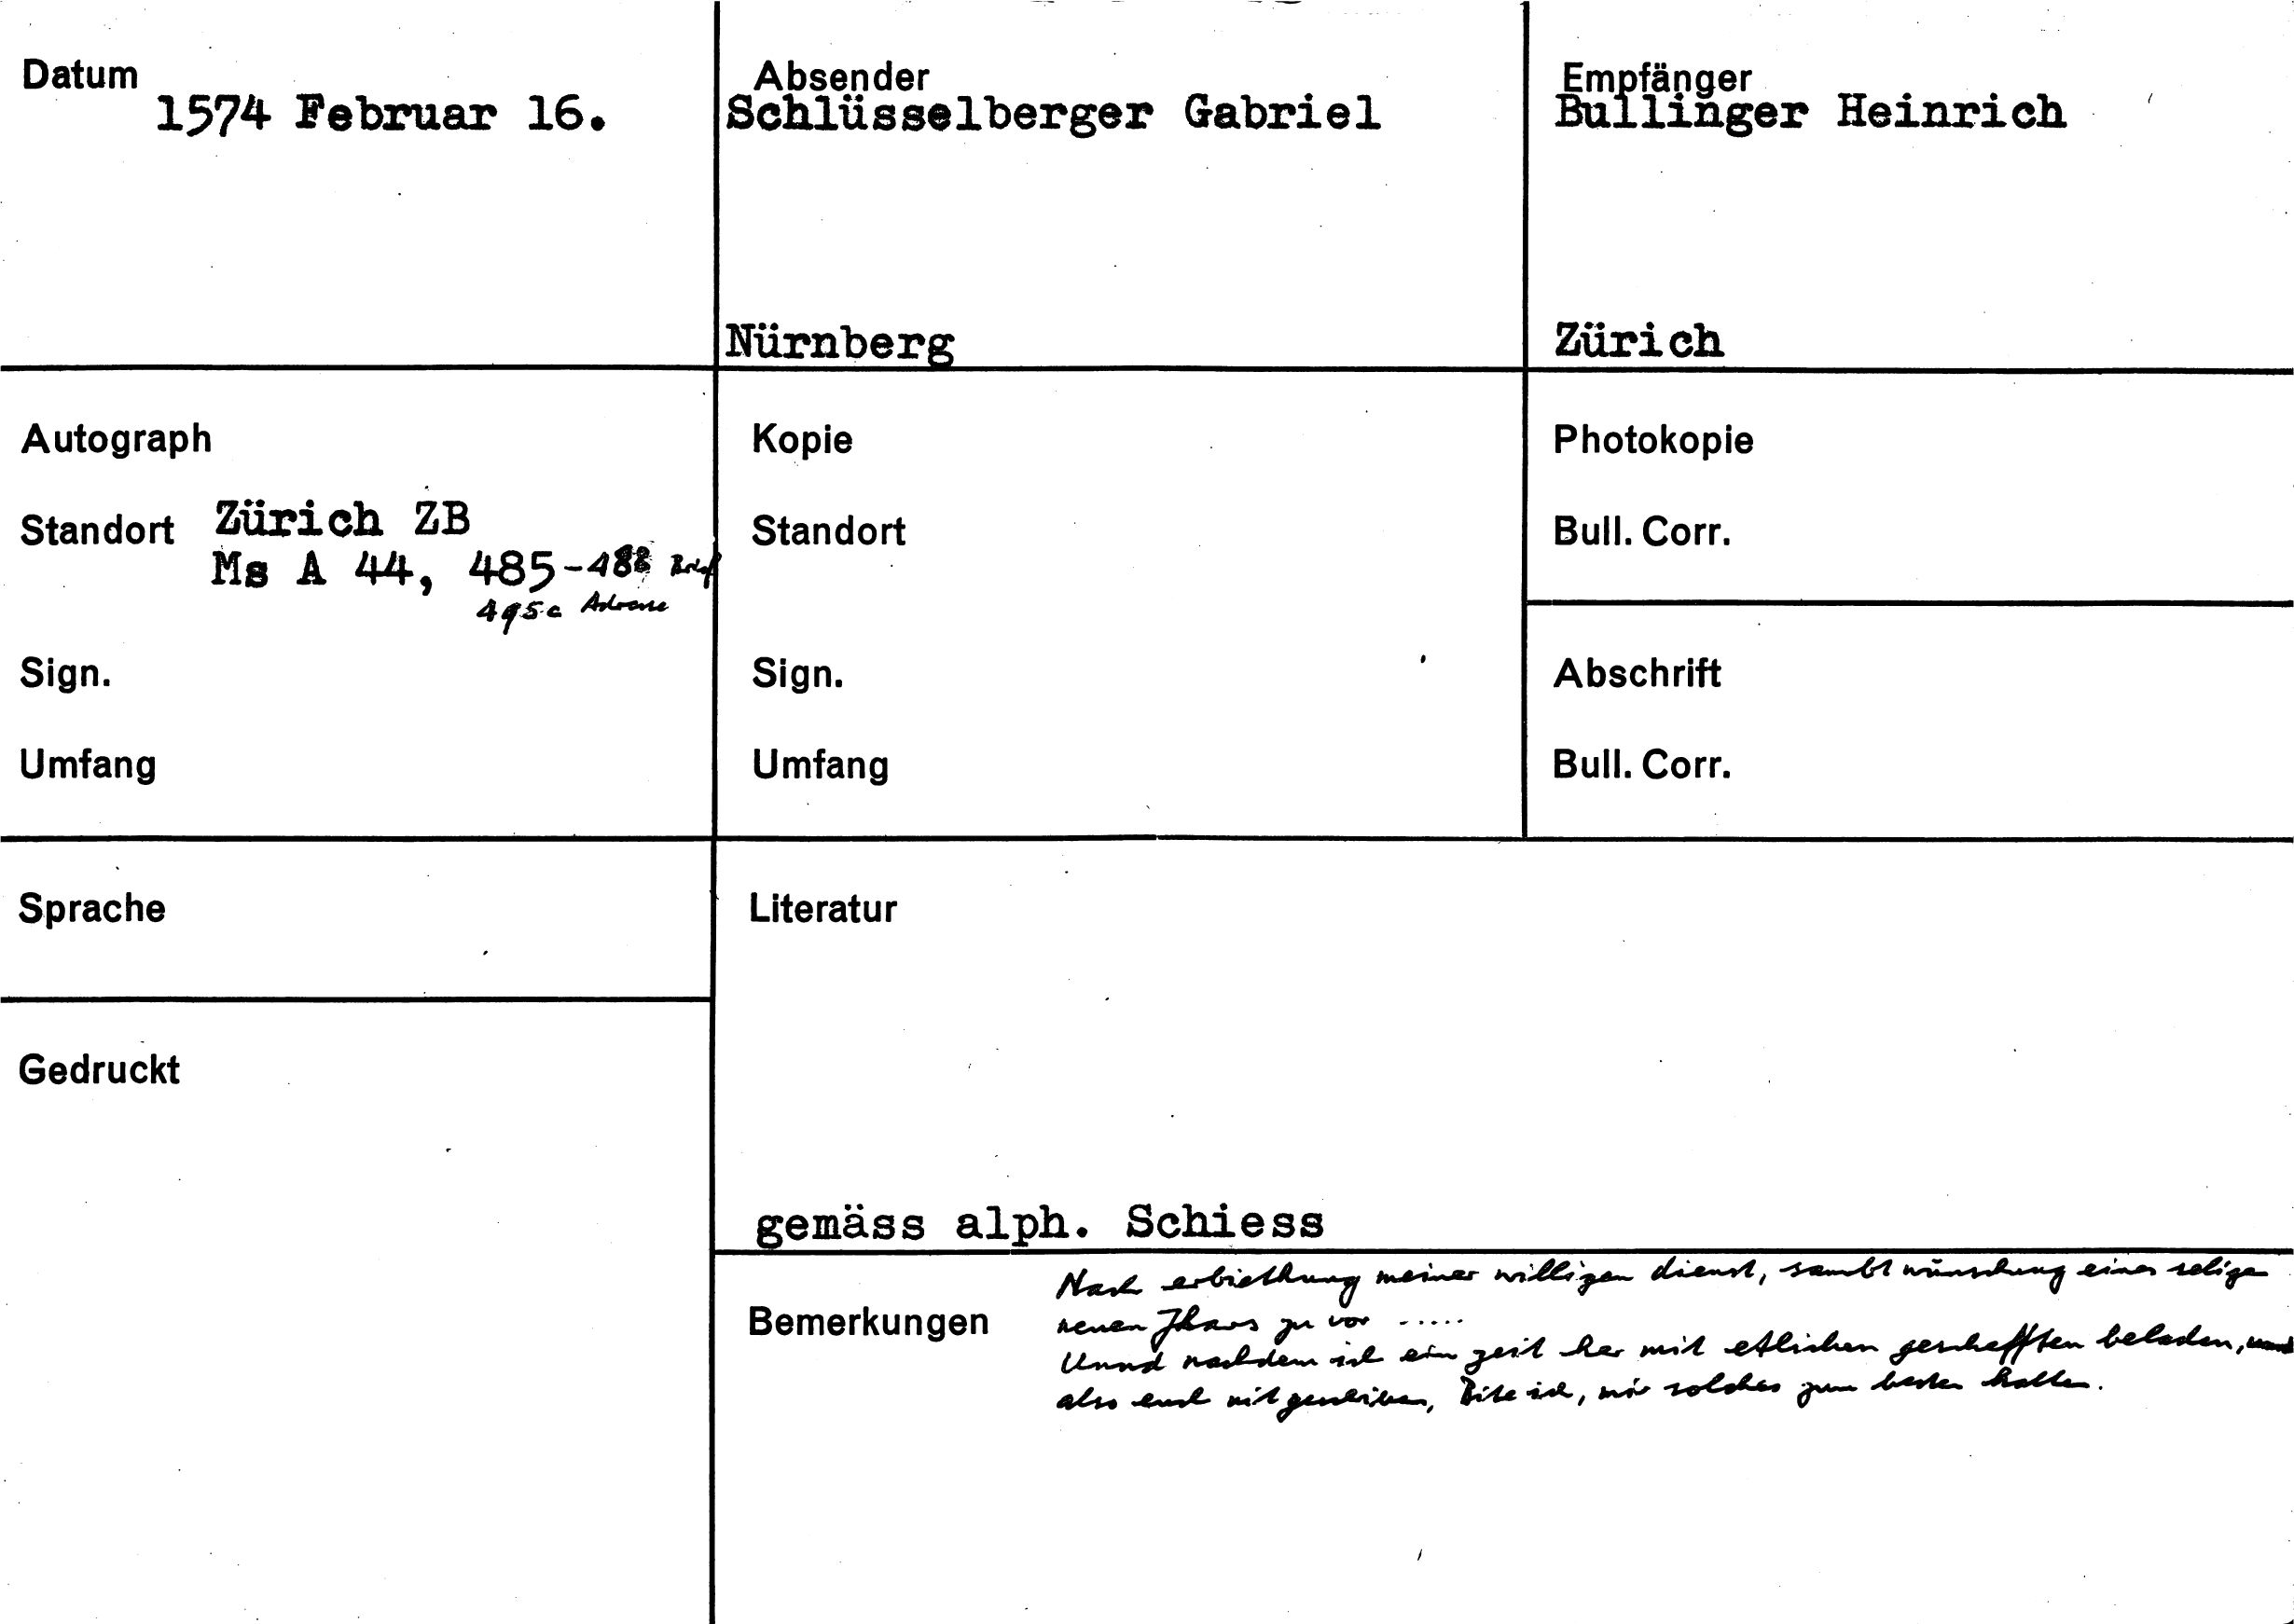 Datum
1574 Februar 16.
Absender
Schlüsselberger Gabriel
Nürnberg
Empfänger
Bullinger Heinrich
Zürich
Autograph
Standort Zürich ZB
Ms A 44, 485-488 Brief
495a Adresse
Sign.
Umfang
Kopie
Standort
Sign.
Umfang
Photokopie
Bull. Corr.
Abschrift
Bull. Corr.
Sprache
Gedruckt
Literatur
gemäss alph. Schiess
Bemerkungen
Nach erbiethung meiner willigen dienst, sambt wünschung eines seligen
neuen Jhars zu vor .....
Unnd nachdem ich ein zeit her mit etlichen geschefften beladen, unnd
also euch nit geschriben, Bite ich, mir solches zum besten halten.